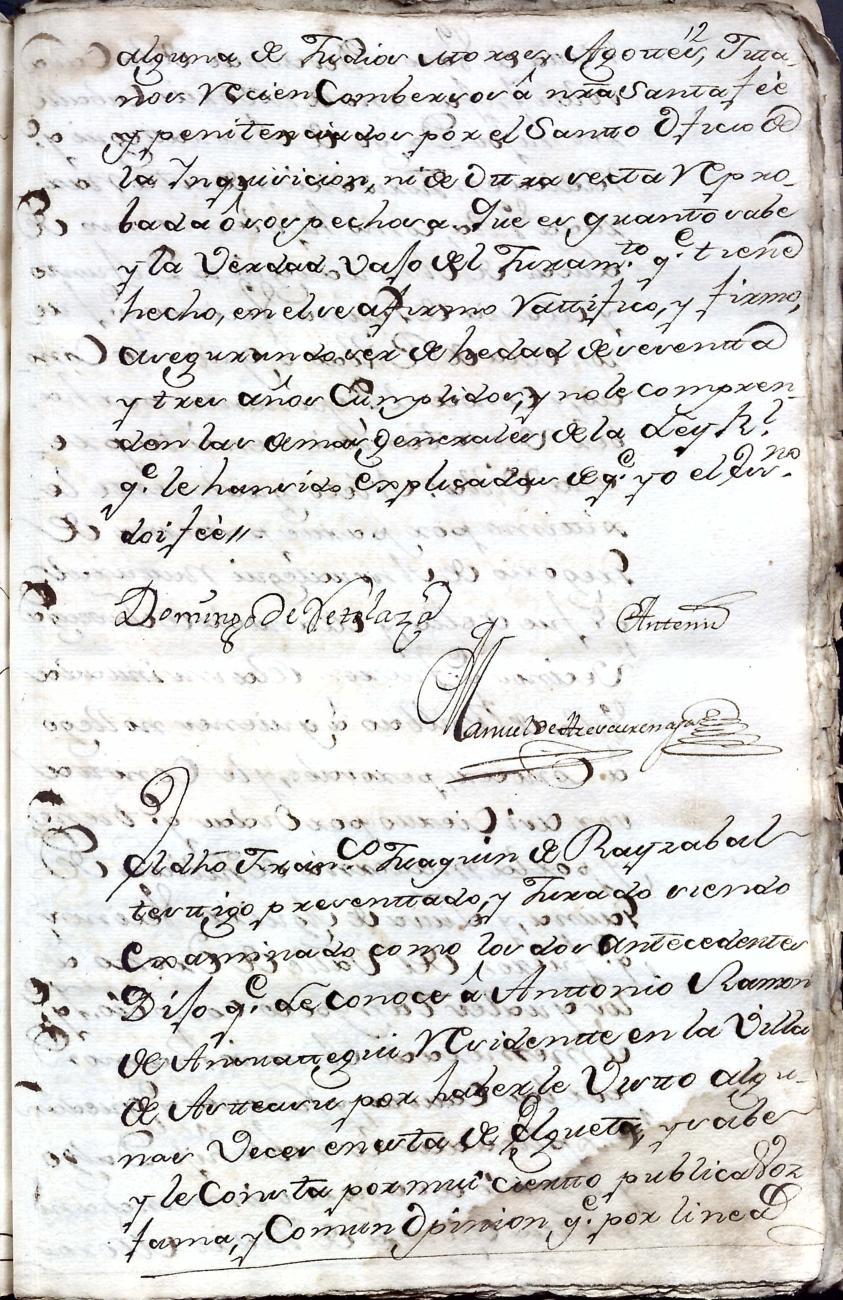 12
alguna de Judios Moros, Agottes, Jita-
nos Recien Combersos â nra Santa feè
y penitenciados por el Santto Oficio de
la Inquisicion, ni de ottra secta Repro-
bada ô sospechosa. Que es quantto sabe
y la Verdad vajo del Juram.to q.e tiene
hecho, en el se afirmo Rattifico, y firmo,
asegurando ser de hedad de settentta
y tres años Cumplidos, y no le compren-
den las demas Generales de la Ley Rl.
q.e le han sido Explicadas de q.e yo el Ess.no
doi feè//.
Domingo de
Antemi
Manuel de
El dho Fran.co Juaquin de Rayzabal
testtigo presenttado, y Jurado siendo
Examinado como los dos antecedentes
Dijo q.e de conoce â Anttonio Ramon
de Ainnattegui Residentte en la Villa
de Astteasu por haberle Vistto algu-
nas Veces en esta de Elgueta, y sabe
y le Consta por mui ciertto publica Voz
fama, y Comun Opinion q.e por linea